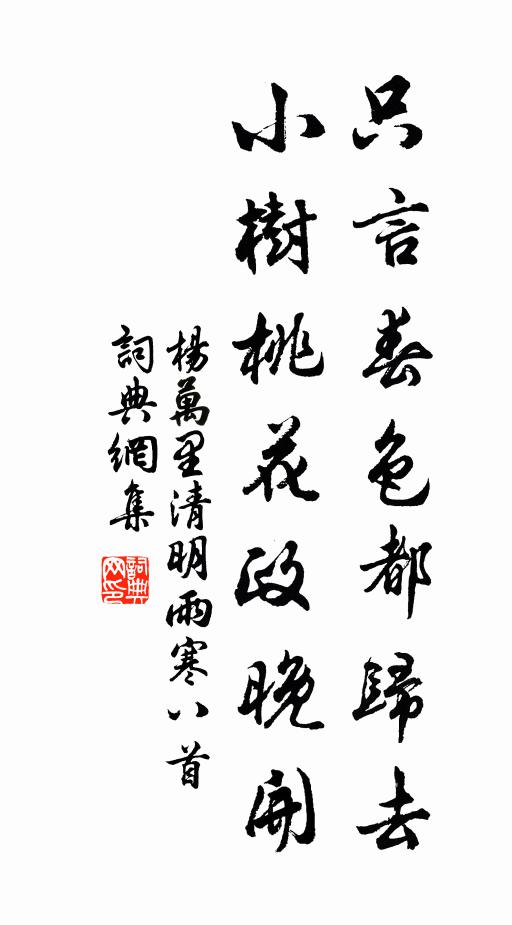 只言春色都歸去
小樹桃花政晚開
楊萬里清明雨寒八首
詞典網集
詞典网印